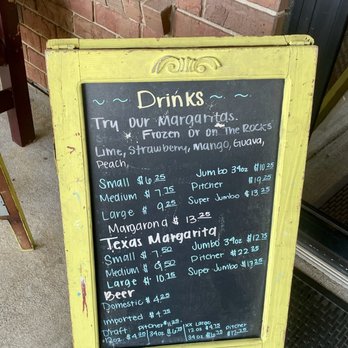 ~ ~ Drinks ~ ~
Try Our Margaritas.
Frozen Or On The Rocks
Lime, Strawberry, Mango, Guava,
Peach.
Small $6.25 Jumbo 34oz $10.25
Medium $7.75 Pitcher $19.25
Large $9.25 Super Jumbo $13.25
Margarona $13.25
Texas Margarita
Small $7.50 Jumbo 34oz $12.75
Medium $9.50 Pitcher $22.25
Large $10.75 Super Jumbo
Beer
Domestic $4.25
Imported $4.75
Draft Pitcher XX Large Pitcher
12oz 34oz 12oz 34oz